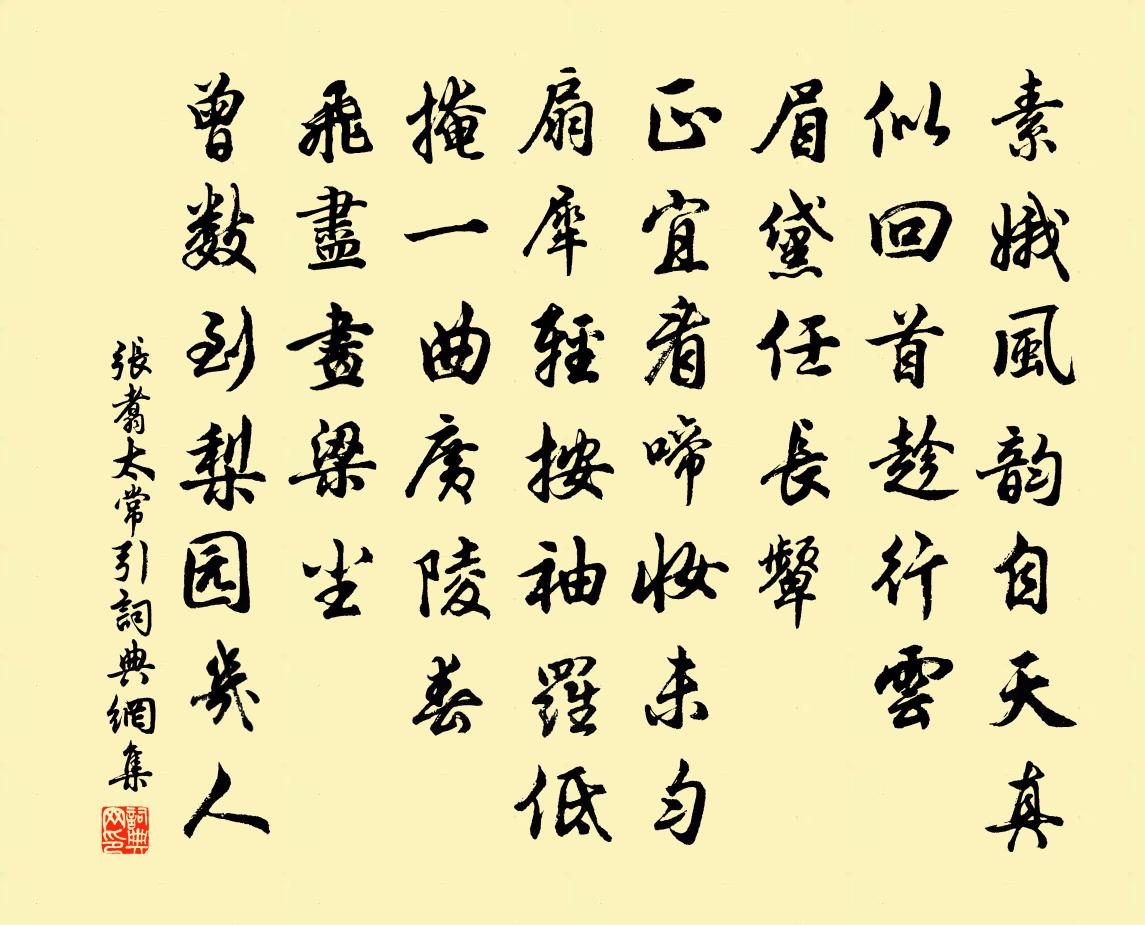 素娥風韵自天真
似回首趁行雲
眉黛任長顰
正宜看啼妆未匀
扇犀輕按袖羅低
掩一曲廣陵春
飛盡畫梁尘
曾數到梨园幾人
張翥太常引詞典網集
詞典网印